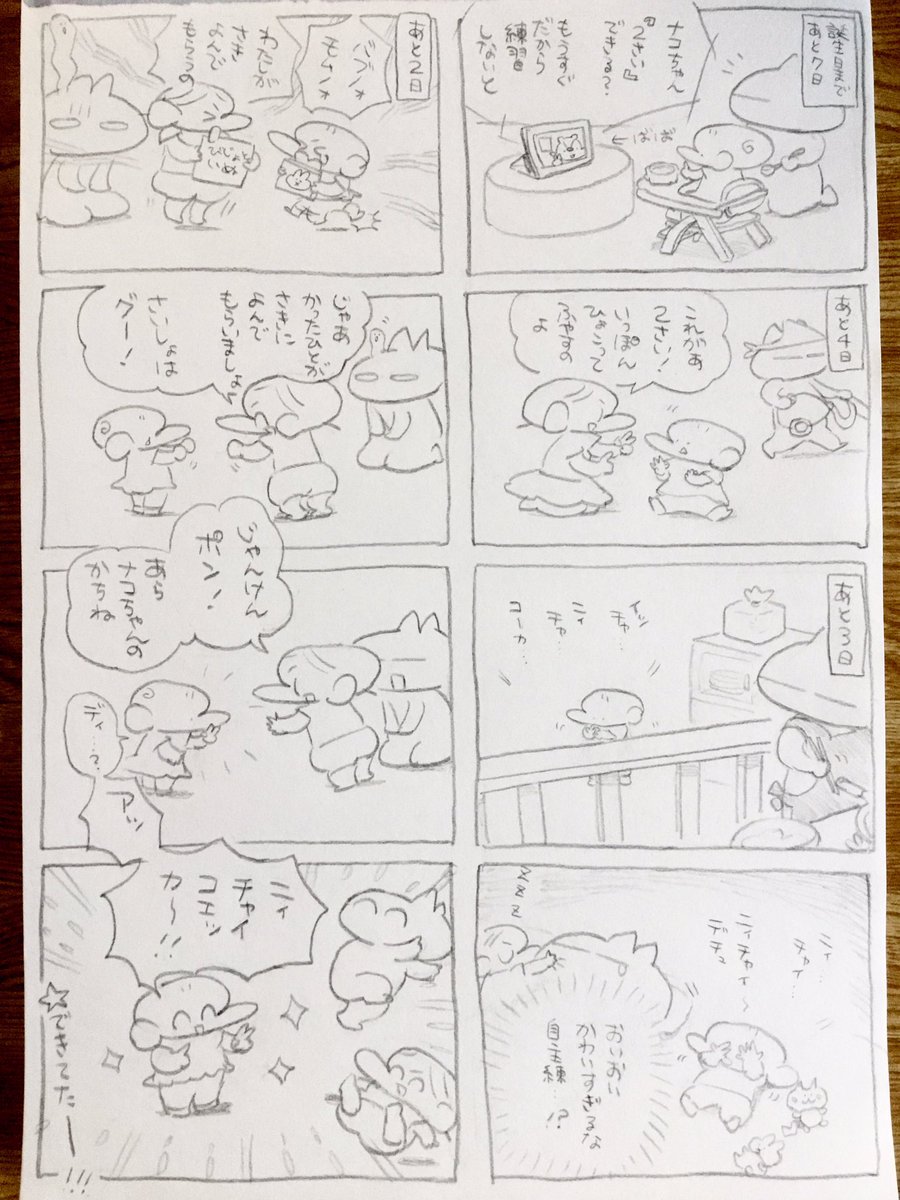 誕生日まで
あと7日
ナコちゃん
『2さい』
できる?
もうすぐ
だから
練習
しないと
ばぁば
あと4日
これがぁ
2さい!
いっぽん
ひねって
ふやすの
よ
あと3日
イッ
チャ…
ニィ
チャ…
コーカ…
ニィ
チャイ…
ニィチャイ〜
デチュ
zzz
おいおい
かわいすぎるな
自主練…!?
あと2日
わたしが
さき
よんで
もらうの
じゃあ
かったひとが
さきに
よんで
もらいましょ
さいしょは
グー!
じゃんけん
ポン!
あら
ナコちゃんの
かちね
ディ…?
アッ
ニィ
チャイ
コエッ
カ〜!!
☆できてだー!!!